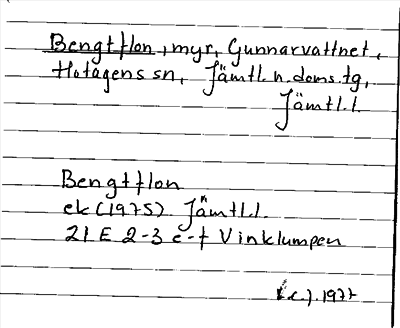 Bengtflon, myr, Gunnarvattnet,
Hotagens sn, Jämtl. n. doms. tg,
Jämtl. l.
Bengtflon
ek (1975) Jämtl. l.
21 E 2-3 e-f Vinklumpen
1977